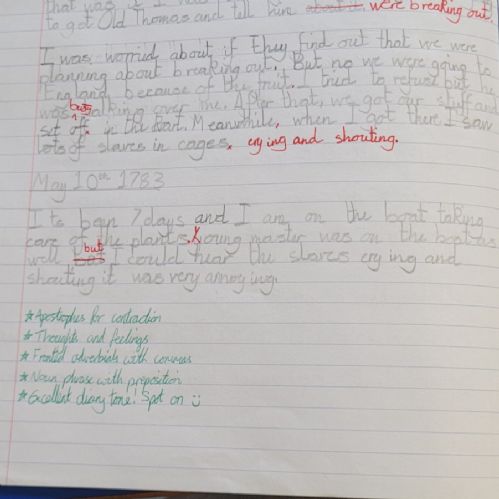 that was it I
to got Old Thomas and tell him about it were breaking out
I was worried about if they find out that we were
planning about breaking out. But no we were going to
England because of the fruit. I tried to refuse but he
was but talking over me. After that, we got our stuff and
set off. in the boat. Meanwhile, when I got there I saw
lots of slaves in cages. crying and shouting.
May 10th 1783
Its bein 7 days and I am on the boat taking
care of the plants. Young master was on the boat as
well but I could hear the slaves crying and
shouting it was very annoying.
* Apostrophes for contraction
* Thoughts and feelings
* Fronted adverbials with commas
* Noun phrase with preposition
* Excellent diary tone! Spot on